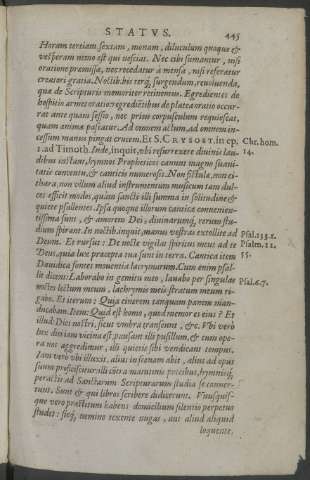 STATVS. 445
Horam tertiam, sextam, nonam, diluculum quoque &
vesperam nemo est qui nesciat. Nec cibi sumantur, nisi
oratione præmissa, nec recedatur à mensa, nisi referatur
creatori gratia. Noctib. bis terq́, surgendum, revolvenda,
quæ de Scripturis memoriter retinemus. Egredientes de
hospitio armet oratio: egredientibus de platea oratio occur-
rat ante quàm sessio, nec prius corpusculum requiescat,
quàm anima pascatur. Ad omnem actum, ad omnem in-
cessum manus pingat crucem. Et S. CRYSOST. in ep. Chr. hom.
1. ad Timoth. Inde, inquit, ubi resurrexere divinis lau- 14.
dibus instant, hymnos Propheticos canunt magno suavi-
tatis conventu, & canticis numerosis. Non fistula, non ci-
thara, non ullum aliud instrumentum musicum tam dul-
ces efficit modos, quàm sanctis illi summa in solitudine &
quiete psallentes. Ipsa quoque illorum cantica convenien-
tissima sunt, & amorem Dei, divinarumq́, rerum stu-
dium spirant. In noctib. inquit, manus vestras extollite ad Psal. 133. 1.
Deum. Et rursus: De nocte vigilat spiritus meus ad te Psalm. 12.
Deus, quia lux præcepta tua sunt in terra. Cantica item 55.
Davidica fontes moventia lacrymarum. Cum enim psal-
lit dicens: Laborabo in gemitu meo, lavabo per singulas Psal. 6. 7.
noctes lectum meum, lachrymis meis stratum meum ri-
gabo. Et iterum: Quia cinerem tanquam panem man-
ducabam. Item: Quid est homo, quod memor es eius? Et
illud: Dies nostri, sicut umbra transeunt, &c. Ubi verò
lux diurna vicina est, pausant illi pusillum, & cum ope-
ra nos aggredimur, illi quietis sibi vendicant tempus.
Iam verò ubi illuxit, alius
sum proficiscitur: illi cõtra matutinis precibus, hymnisq́,
peractis ad Sanctarum Scripturarum studia se conver-
tunt. Sunt & qui libros scribere didicerunt. Vnusquis-
que verò præstitum habens domicilium silentio perpetuo
studet: sicq́, nemino texente nugas, aut aliud aliquid
loquente.